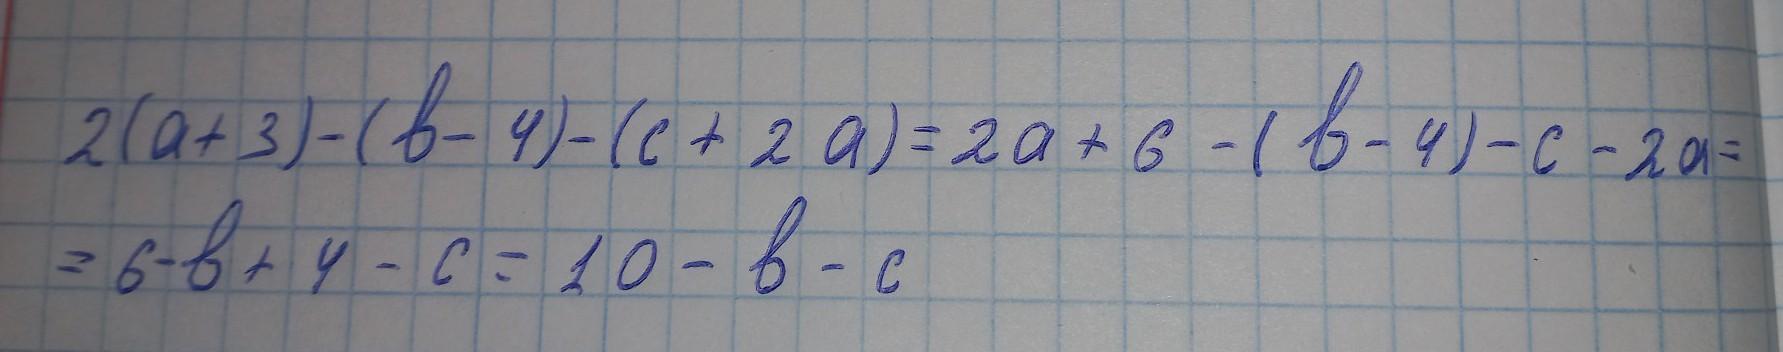 2(a+3)-(b-4)-(c+2a)=2a+6-(b-4)-c-2a=
=6-b+4-c=10-b-c